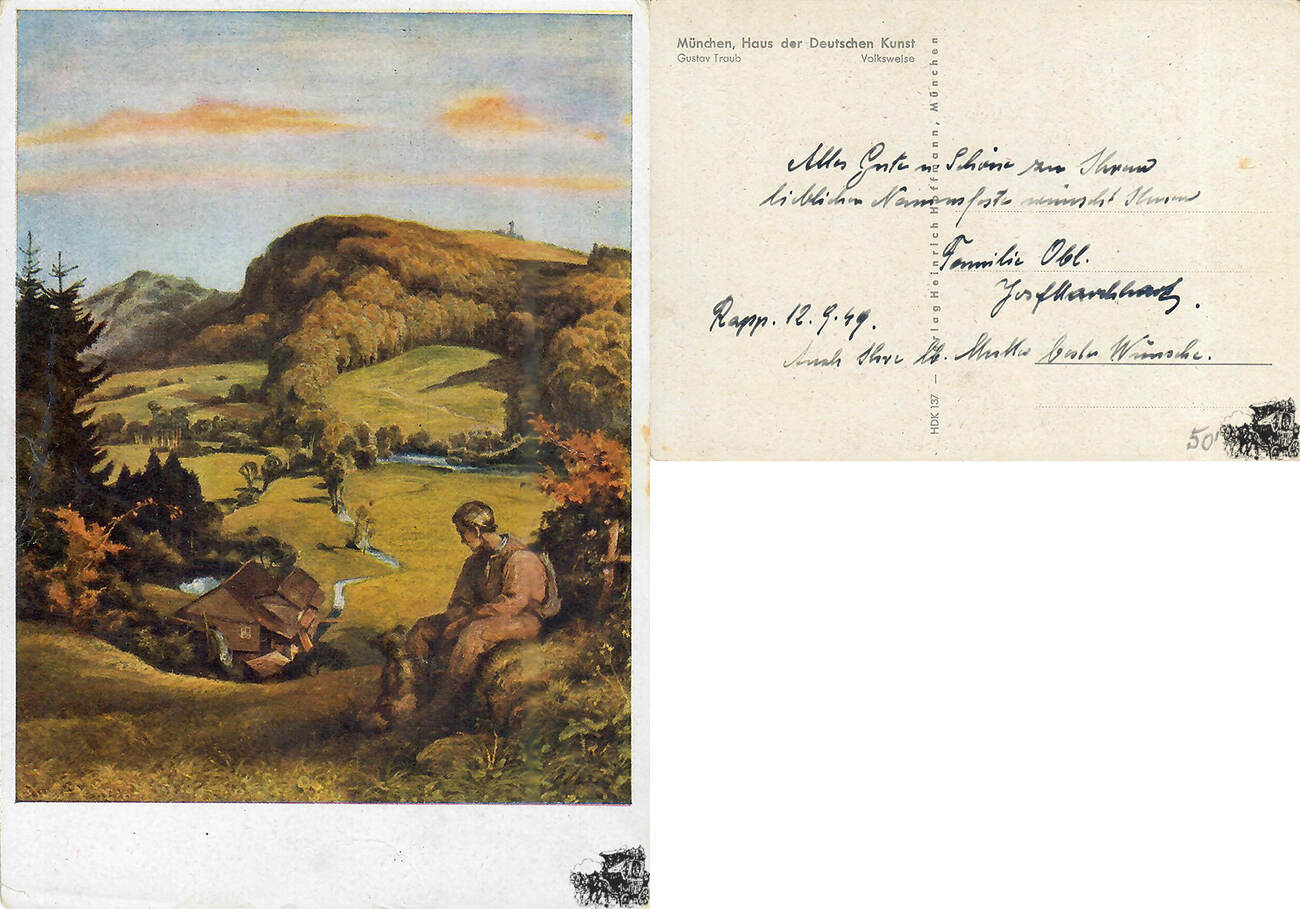 München, Haus der Deutschen Kunst
Gustav Traub Volksweise
Verlag Heinrich Hoffmann, München
HDK 137 —
Alles Gute u Schöne zu Ihrem
lieblichen Namensfeste wünscht Ihnen
Familie Obl.
Josef
Rapp. 12.9.49.
Auch Ihre lb. Mutter beste Wünsche.
50